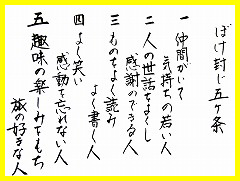 ぼけ封じ五ヶ条
一 仲間がいて
気持ちの若い人
二 人の世話をよくし
感謝のできる人
三 ものをよく読み
よく書く人
四 よく笑い
感動を忘れない人
五 趣味の楽しみをもち
旅の好きな人